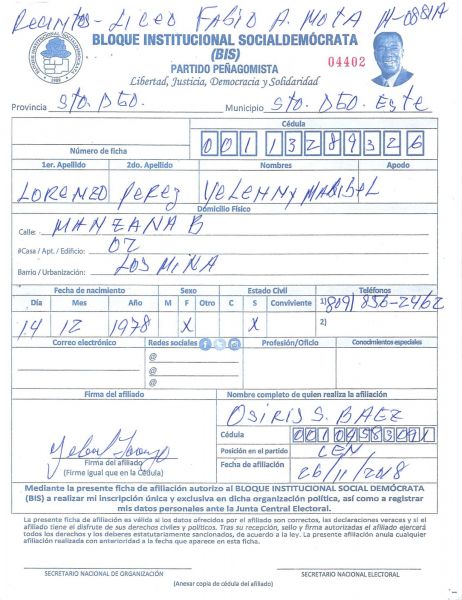 Recinto - Liceo Fabio A. Mota
BLOQUE INSTITUCIONAL SOCIALDEMÓCRATA
(BIS)
04402
PARTIDO PEÑAGOMISTA
Libertad, Justicia, Democracia y Solidaridad
Provincia Sto. Dgo. Municipio Sto. Dgo Este
Cédula
Número de ficha 001 1328932 6
1er. Apellido 2do. Apellido Nombres Apodo
LORENZO PEREZ YELENNY MARIBEL
Domicilio Físico
Calle: MANZANA B
#Casa / Apt. / Edificio: 07
Barrio / Urbanización: LOS MINA
Fecha de nacimiento Sexo Estado Civil Teléfonos
Día Mes Año M F Otro C S Conviviente 1) 809/856-2462
14 12 1978 X X 2)
Correo electrónico Redes sociales Profesión/Oficio Conodmientos especiales
@
@
@
Firma del afiliado Nombre completo de quien realiza la afiliación
OSIRIS S. BAEZ
Cédula
Posición en el partido CEN
Fecha de afiliación 26/11/2018
Firma del afiliado
(Firme igual que en la Cédula)
Mediante la presente ficha de afiliación autorizo al BLOQUE INSTITUCIONAL SOCIAL DEMÓCRATA
(BIS) a realizar mi inscripción única y exclusiva en dicha organización política, así como a registrar
mis datos personales ante la Junta Central Electoral.
La presente ficha de afiliación es válida si los datos ofrecidos por el afiliado son correctos, las declaraciones veraces y si el
afiliado tiene el disfrute de sus derechos civiles y políticos. Tras su recepción, sello y firma autorizadas el afiliado ejercerá
todos los derechos y los deberes estatutariamente sancionados, de acuerdo a la ley. La presente afiliación anula cualquier
afiliación realizada con anterioridad a la fecha que aparece en esta ficha.
SECRETARIO NACIONAL DE ORGANIZACIÓN SECRETARIO NACIONAL ELECTORAL
(Anexar copia de cédula del afiliado)